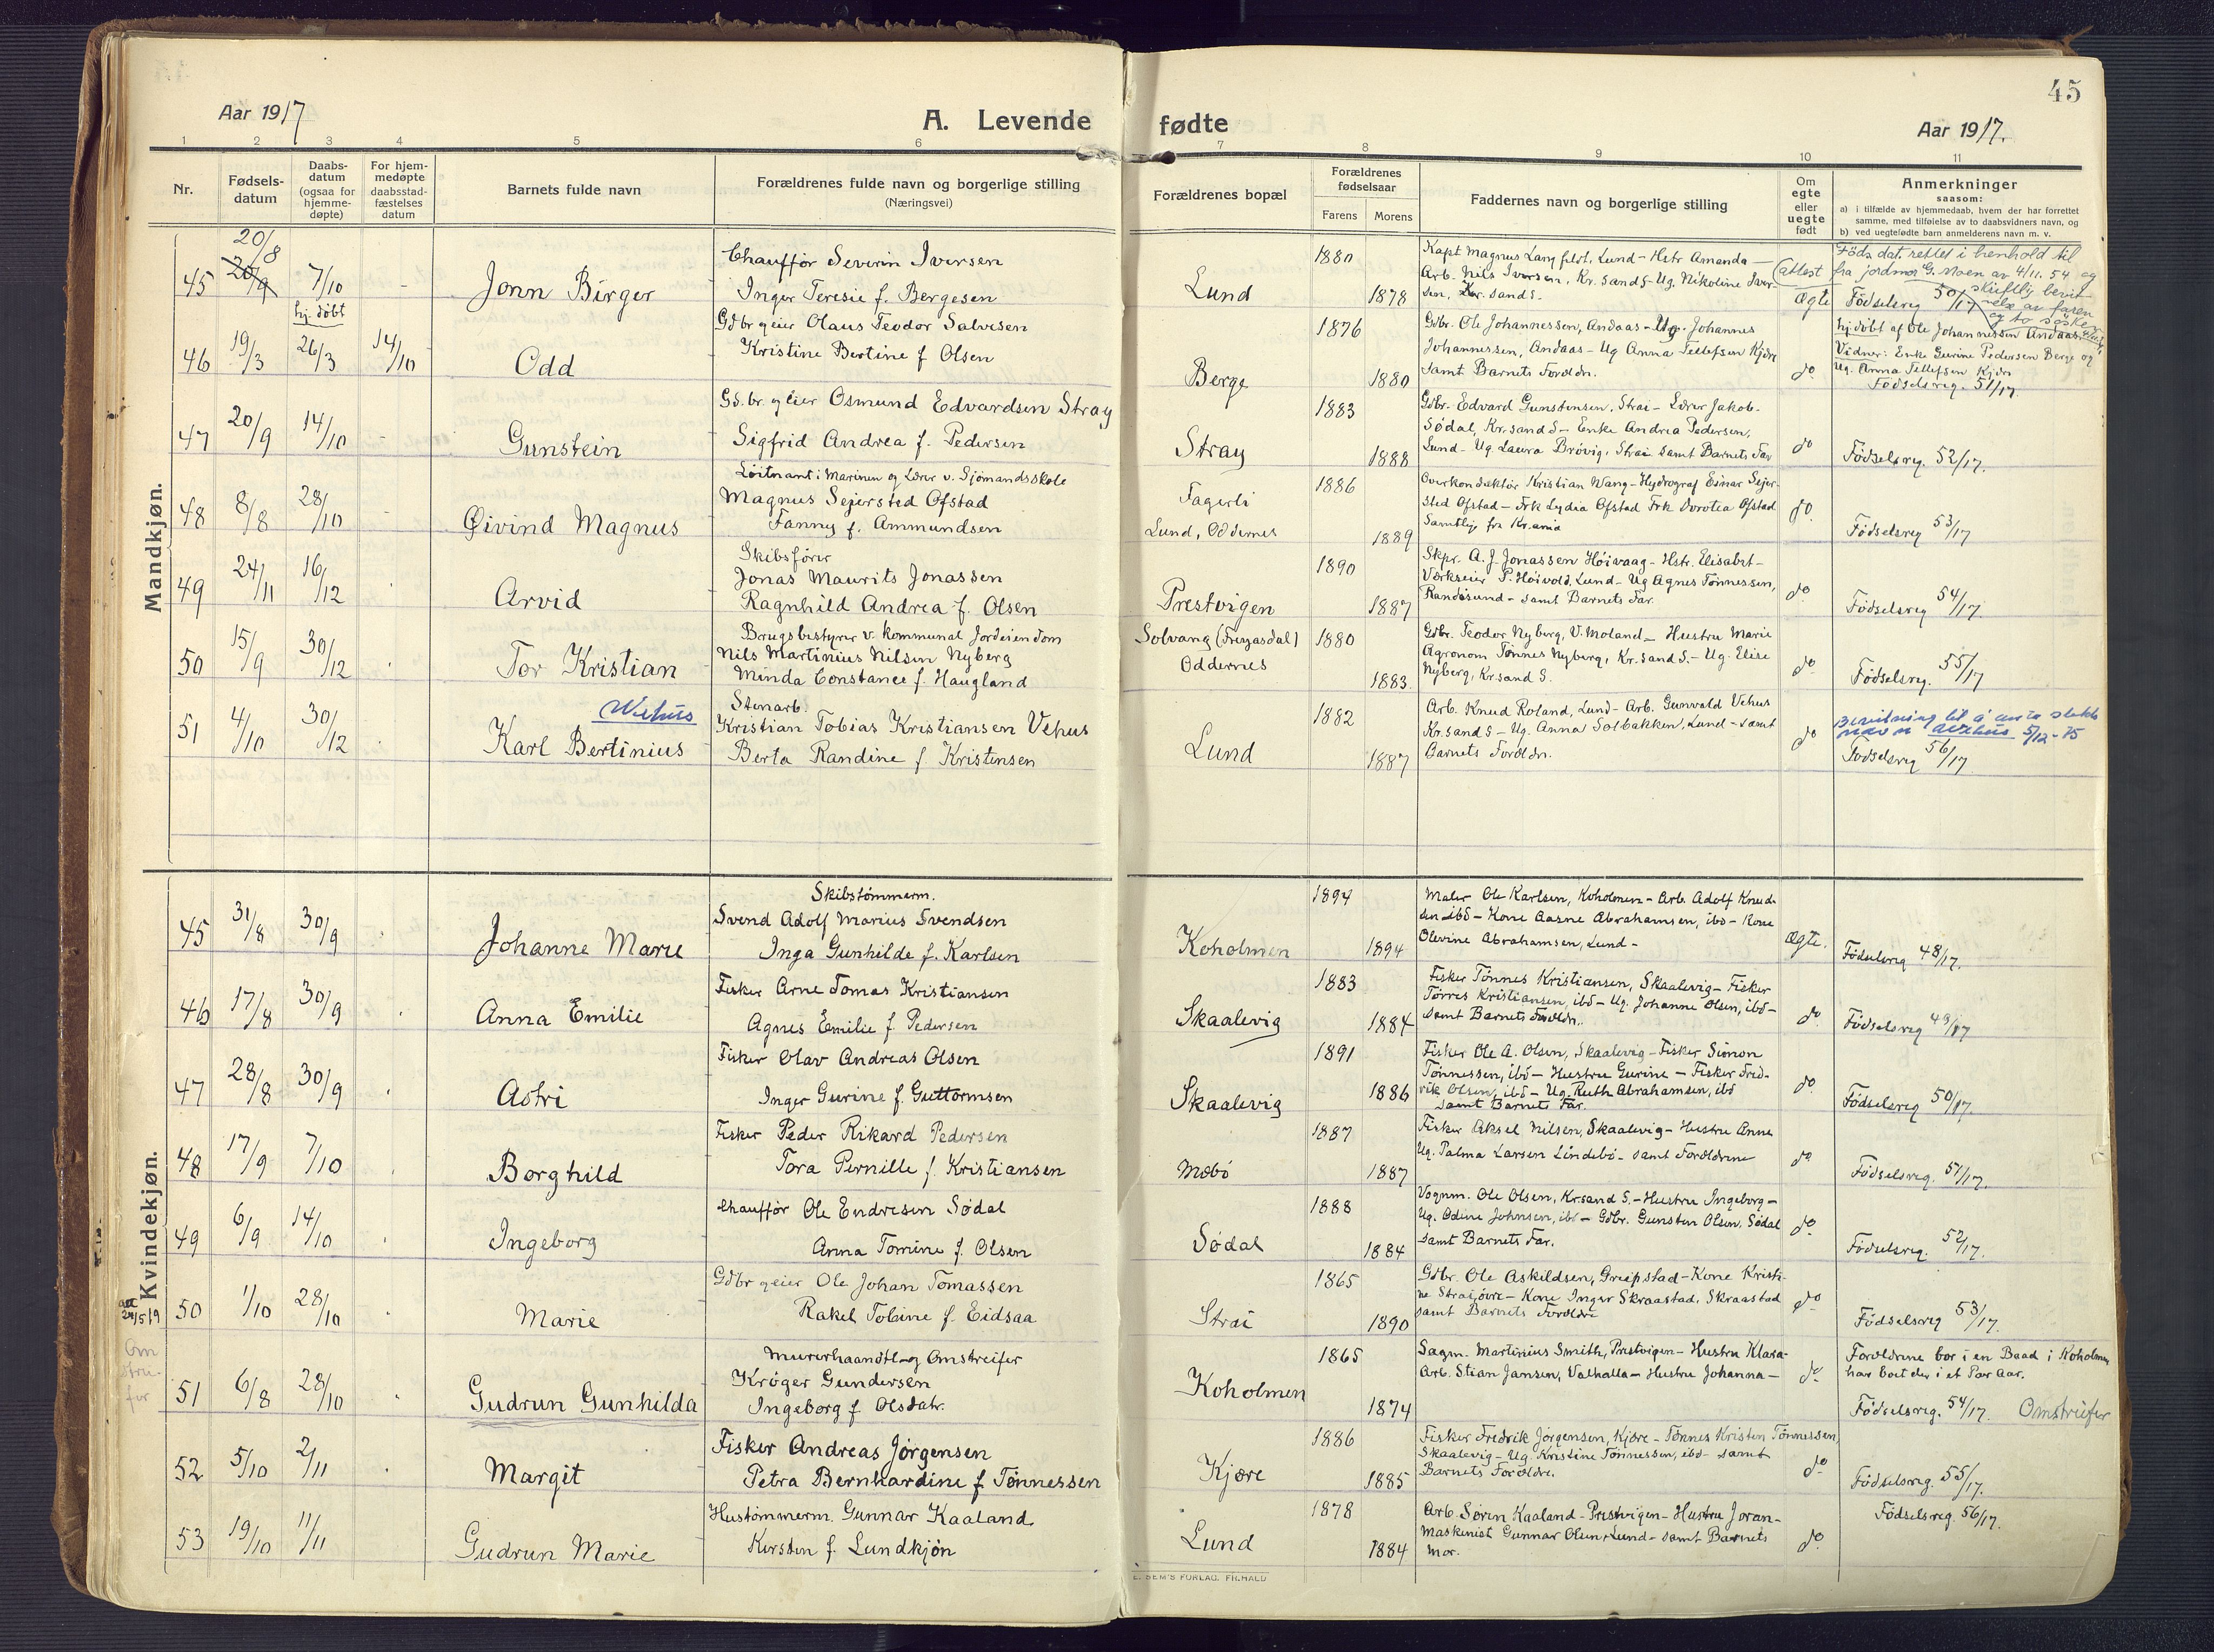 45
Aar 1917
A. Levende
fødte
Aar 1917.
1 2 3 4 5 6 7 8 9 10 11
Nr.
Fødsels-
datum
Daabs-
datum
(ogsaa for
hjemme-
døpte)
For hjem-
medøpte
daabsstad-
fæstelses
datum
Barnets fulde navn
Forældrenes fulde navn og borgerlige stilling
(Næringsvei)
Forældrenes bopæl
Forældrenes
fødselsaar
Farens Morens
Faddernes navn og borgerlige stilling
Om
egte
eller
uegte
født
Anmerkninger
saasom:
a) i tilfælde av hjemmedaab, hvem der har forrettet
samme, med tilføielse av to daabsvidners navn, og
b) ved uegtefødte barn anmelderens navn m. v.
Mandkjøn.
45
20/8
20/9
7/10
-
Jonn Birger
Chauffør Severin Iversen
Inger Teresie f. Bergesen
Lund
1880
1878
Kapt Magnus Langfeldt, Lund - Hstr Amanda -
Arb. Nils Iversen, Kr. sand S - Ug. Nikoline Iver-
sen, Kr. sand S.
Ægte
Føds. dat. rettet i henhold til
(attest fra jordmor G. Moen av 4/11. 54 og
skriftlig bevit-
nelse av faren
og to søsken
Fødselsreg 50/17
46
19/3
hj. døbt
26/3
14/10
Odd
Gdbr og eier Olaus Teodor Salvesen
Kristine Bertine f Olsen
Berge
1876
1880
Gdbr. Ole Johannessen, Andaas - Ug. Johannes
Johannessen, Andaas - Ug Anna Tellefsen Kjære
samt Barnets Foreldre.
do
hj. døbt af Ole Johannessen Andaas
Vidner: Enke Gurine Pedersen Berge og
Ug. Anna Tellefsen Kjære
Fødselsreg. 51/17.
47
20/9
14/10
-
Gunstein
Gd. br. og eier Osmund Edvardsen Stray
Sigfrid Andrea f. Pedersen
Stray
1883
1888
Gdbr. Edvard Gunstensen, Strai - Lærer Jakob
Sødal, Kr.sand S - Enke Andrea Pedersen,
Lund - Ug. Laura Brøvig, Strai samt Barnets Far
do
Fødselsreg. 52/17.
48
8/8
28/10
-
Øivind Magnus
Løitnant i Marinen og Lærer v. Sjømandsskole
Magnus Sejersted Ofstad
Fanny f. Ammundsen
Fagerli
Lund, Oddernes
1886
1889
Overkonduktør Kristian Wang - Hydrograf Einar Sejer-
sted Ofstad - Frk Lydia Ofstad Frk Dorotea Ofstad
Samtlige fra Kr.ania
do.
Fødselsreg 53/17
49
24/11
16/12
Arvid
Skibsfører
Jonas Maurits Jonassen
Ragnhild Andrea f. Olsen
Prestvigen
1890
1887
Skpr. A. J. Jonassen Høivaag - Hstr. Elisabet -
Værkseier P. Høivold, Lund - Ug Agnes Tønnessen,
Randøsund - samt Barnets Far.
do
Fødselsreg 54/17.
50
15/9
30/12
Tor Kristian
Brugsbestyrer v. kommunal Jordeiendom
Nils Martinius Nilsen Nyberg
Minda Constance f. Haugland
Solvang (Frejasdal)
Oddernes
1880
1883.
Gdbr. Teodor Nyberg, V. Moland - Hustru Marie
Agronom Tønnes Nyberg, Kr.sand S. - Ug. Elise
Nyberg, Kr.sand S.
do
Fødselsreg. 55/17
51
4/10
30/12
Wehus
Karl Bertinius
Stenarb.
Kristian Tobias Kristiansen Vehus
Berta Randine f Kristensen
Lund
1882
1887
Arb. Knud Roland, Lund - Arb. Gunvald Vehus
Kr.sand S - Ug. Anna Solbakken, Lund - samt
Barnets Foreldre.
do
navn 5/12-75
Fødselsreg 56/17
Kvindekjøn.
45
31/8
30/9
Johanne Marie
Skibstømmerm.
Svend Adolf Marius Svendsen
Inga Gunhilde f. Karlsen
Koholmen
1894
1894
Maler Ole Karlsen, Koholmen - Arb. Adolf Knud-
sen ibd - Kone Aasne Abrahamsen, ibd - Kone
Olevine Abrahamsen, Lund -
Ægte.
Fødselsreg 48/17.
46
17/8
30/9
Anna Emilie
Fisker Arne Tomas Kristiansen
Agnes Emilie f. Pedersen
Skaalevig
1883
1884
Fisker Tønnes Kristiansen, Skaalevig - Fisker
Tørris Kristiansen, ibd - Ug. Johanne Olsen, ibd -
samt Barnets Foreldre.
do
Fødselsreg 49/17
47
28/8
30/9
Astri
Fisker Olav Andreas Olsen
Inger Gurine f. Guttormsen
Skaalevig
1891
1886
Fisker Ole A. Olsen, Skaalevig - Fisker Simon
Tønnessen, ibd - Hustru Gurine - Fisker Fred-
rik Olsen, ibd - Ug. Ruth Abrahamsen, ibd
samt Barnets Far.
do
Fødselsreg 50/17.
48
17/9
7/10
Borghild
Fisker Peder Rikard Pedersen
Tora Pernille f. Kristiansen
Mæbø
1887
1887
Fisker Aksel Nilsen, Skaalevig - Hustru Anne
Ug. Palma Larsen Lindebø - samt Foreldrene
do
Fødselsreg. 51/17.
49
6/9
14/10
Ingeborg
Chauffør Ole Endresen Sødal
Anna Tomine f. Olsen
Sødal
1888
1884
Vognm. Ole Olsen, Kr.sand S. - Hustru Ingeborg -
Ug. Odine Johnsen, ibd - Gdbr. Gunsten Olsen, Sødal
samt Barnets Far.
do
Fødselsreg. 52/17.
50
1/10
28/10
Marie
Gdbr og eier Ole Johan Tomassen
Rakel Tobine f. Eidsaa
Strai
1865
1890
Gdbr. Ole Askildsen, Greipstad - Kone Kristi-
ne Straiøvre - Kone Inger Skraastad, Skraastad
samt Barnets Foreldre
do
Fødselsreg 53/17.
Om
strei-
fer
51
6/8
28/10
Gudrun Gunhilda
Murerhaandtl. og Omstreifer
Krøger Gundersen
Ingeborg f Olsdatr.
Koholmen
1865
1874
Sagm. Martinius Smith, Prestvigen - Hustru Klara -
Arb. Stian Jansen, Valhalla - Hustru Johanna -
do
Foreldrene bor i en Baad i Koholmen
har boet der i et Par Aar.
Fødselsreg. 54/17. Omstreifer
52
5/10
2/11
Margit
Fisker Andreas Jørgensen
Petra Bernhardine f Tønnessen
Kjære
1886
1885
Fisker Fredrik Jørgensen, Kjære - Tønnes Kristen Tønnessen,
Skaalevig - Ug. Kristine Tønnessen, ibd - samt
Barnets Foreldre.
do
Fødselsreg. 55/17.
53
19/10
11/11
Gudrun Marie
Hustømmerm. Gunnar Kaaland
Kirsten f. Lundkjøn
Lund
1878
1884
Arb. Søren Kaaland - Prestvigen - Hustru Joran -
Maskinist Gunnar Olsen, Lund - samt Barnets
Mor.
do
Fødselsreg. 56/17.
E. SEM'S FORLAG, FR.HALD